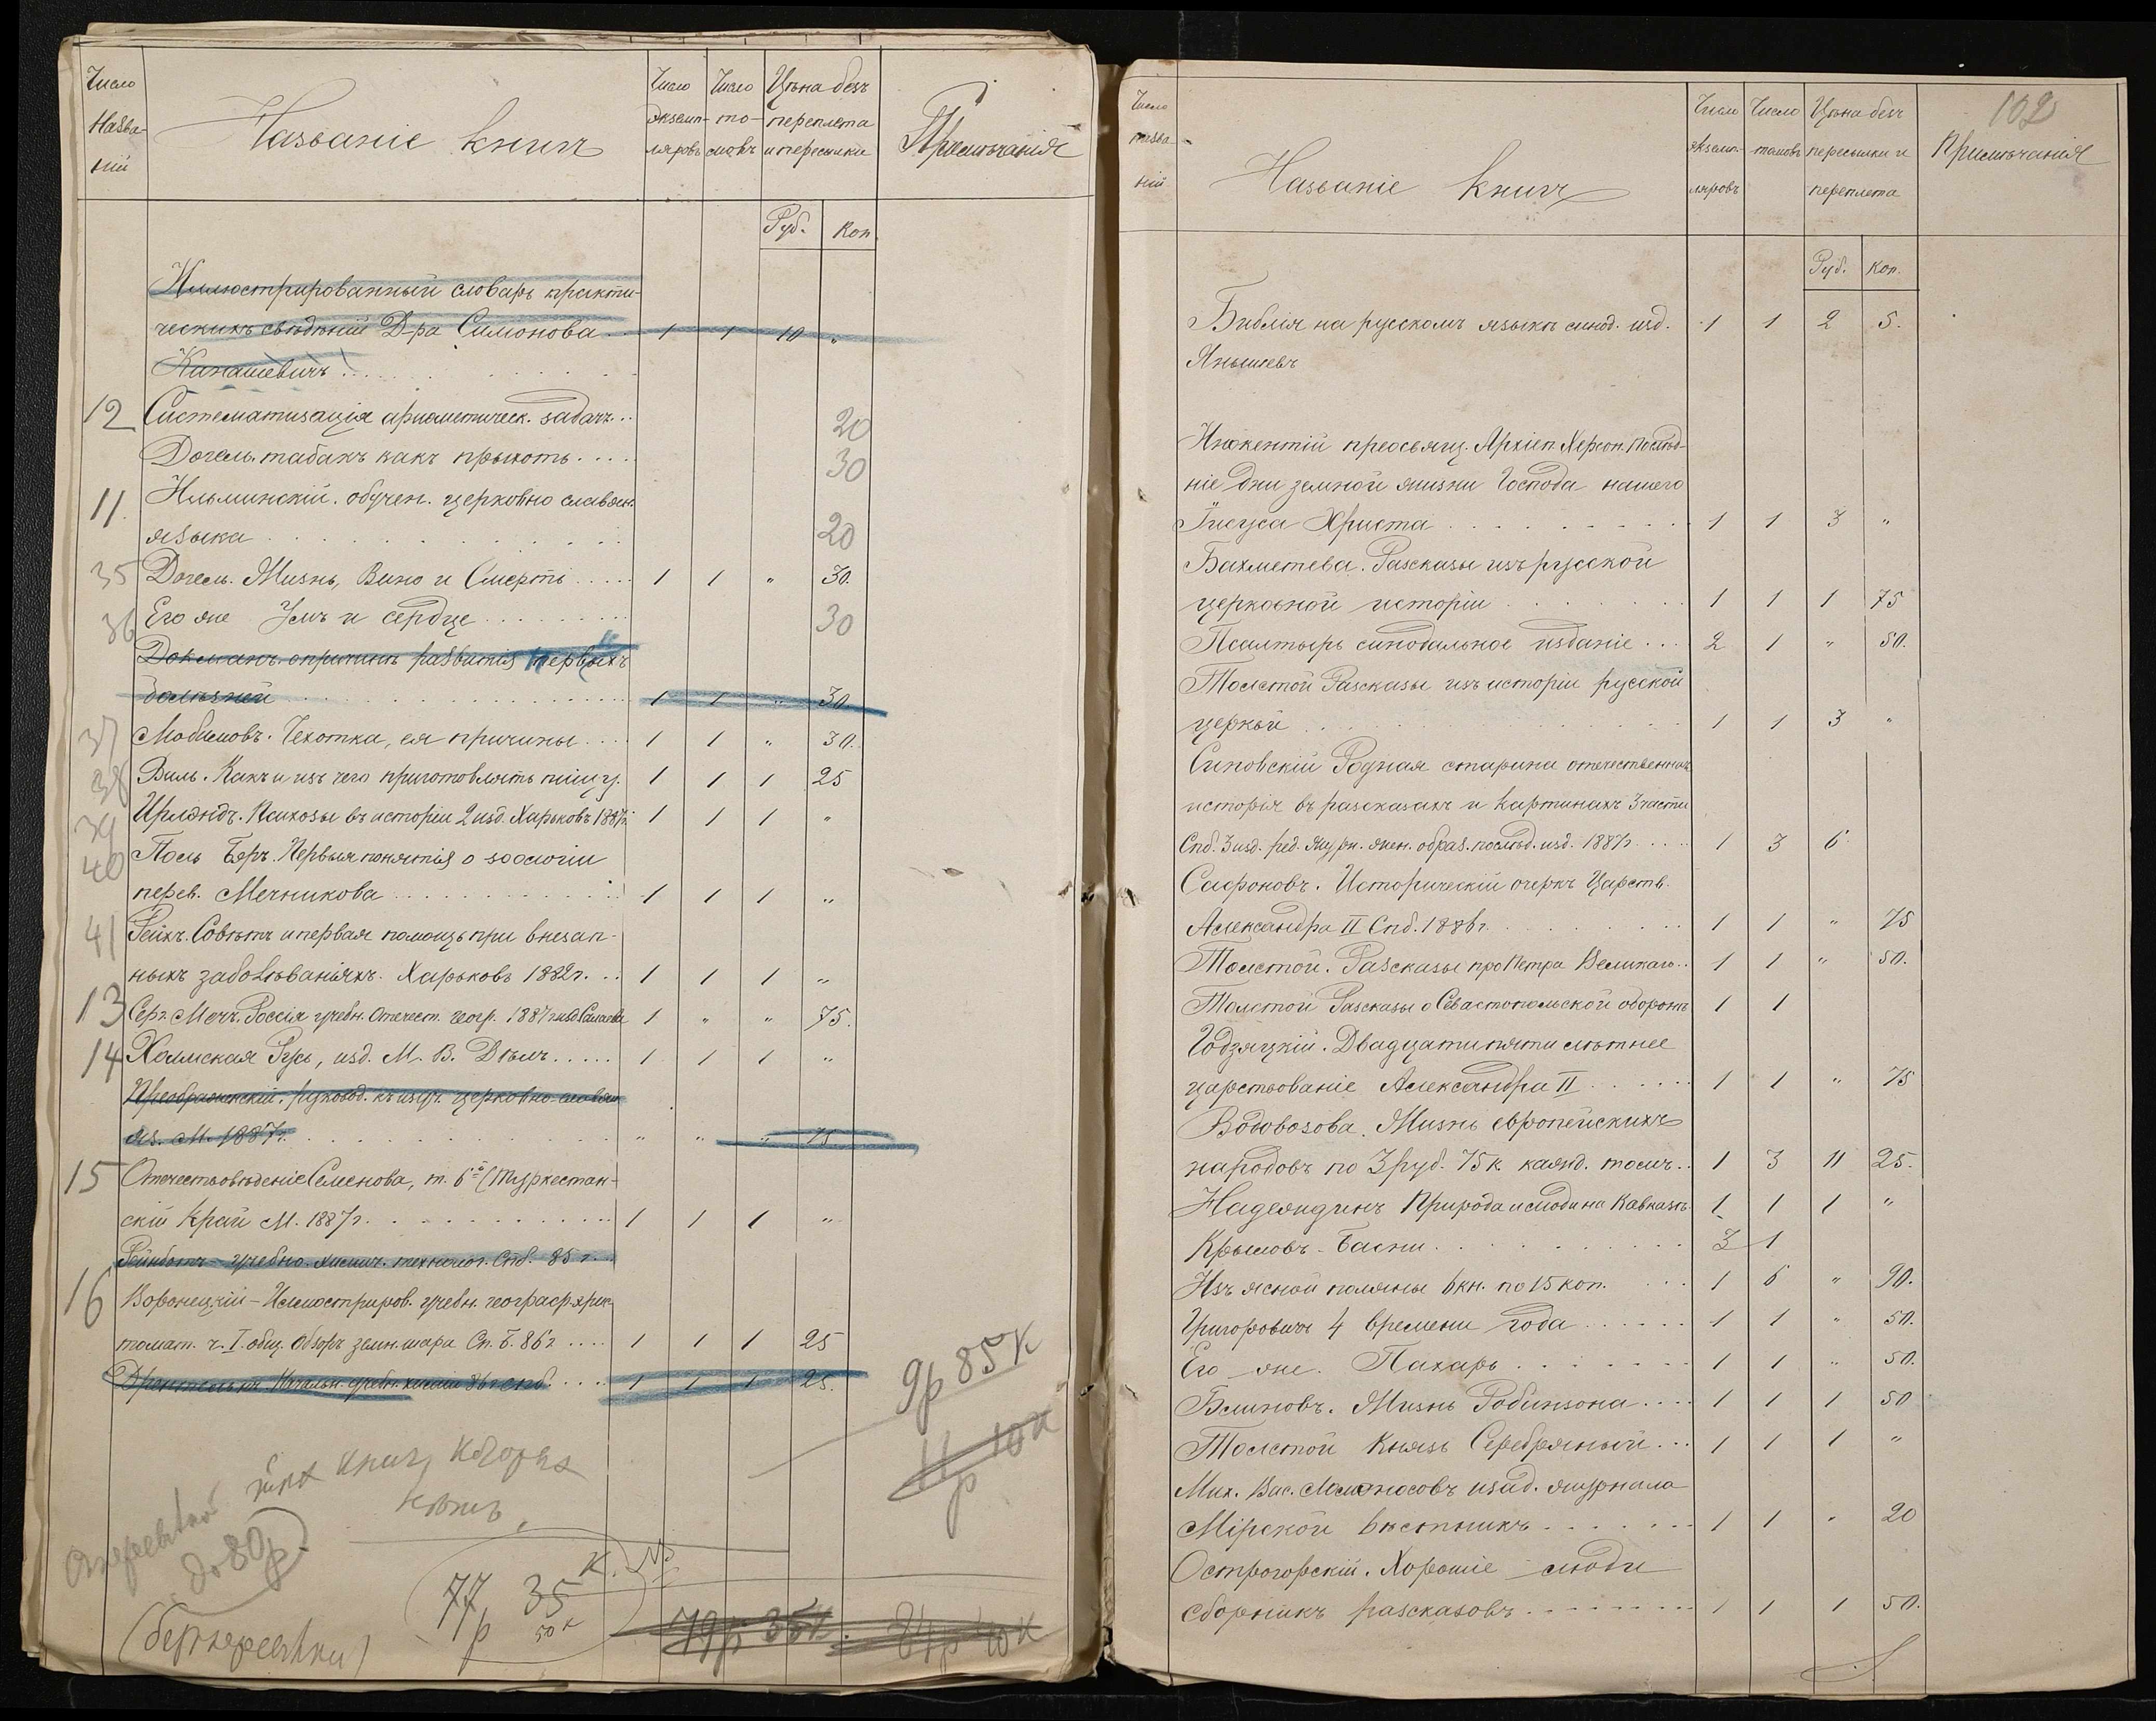 Число Назва- ній
Названіе книгъ
Число экземп- ляровъ
Число то- мовъ
Цѣна безъ переплета и пересылки
Примѣчанія
Руб. Коп.
Иллюстрированный словарь практи-
ческихъ свѣдѣній Д-ра Симонова 1 1 10 "
Канашевичъ
12 Систематизація ариѳметическ. задачъ 20
Догель. табакъ какъ прихоть 30
11. Ильминскій. обучен. церковно славян.
языка 20
35 Догель. Жизнь, Вино и Смерть 1 1 " 30.
36 Его же Умъ и сердце 30
причинѣ развитія нервныхъ
болѣзней 1 1 " 30
37 Чехотка, ея причины 1 1 " 30.
38 Виль. Какъ и изъ чего приготовлять пищу. 1 1 1 25
39 Ирлэндъ. Психозы въ исторіи 2 изд. Харьковъ 1887г. 1 1 1 "
40 Поль Бэръ. Первыя понятія о зоологіи
перев. Мечникова 1 1 1 "
41 Рейхъ. Совѣтъ и первая помощь при внезап-
ныхъ заболѣваніяхъ. Харьковъ 1882г. 1 1 1 "
13 Серг. Мечъ. Россія учебн. Отечест. геогр. 1887г. изд. 1 " " 75.
14 Холмская Русь, изд. М. В. Д-вомъ 1 1 1 "
Преображенскій. руковод. къ изуч. церковно-славян
яз. М. 1887г. " " " 75
15 Отечествовѣденіе Семенова, т. 6й (Туркестан-
скій Край М. 1887г. 1 1 1 "
Рейнботъ - учебно. химич. технолог. Спб. 85 г.
16 Воронецкій - Иллюстриров. учебн. географ. хрес-
томат. ч. I. общ. Обзоръ земн. шара Сп. Б. 86г 1 1 1 25
Начальн. учебн. химіи 86г. Спб. 1 1 1 25.
9р 85к
11р 10к
книгъ которыхъ
нѣтъ.
до 80р.
77р 35к
50к
(безъ пересылки)
79р 35к.
84р 10к
102
Число назва- ній
Названіе книгъ
Число экземп- ляровъ
Число томовъ
Цѣна безъ пересылки и переплета
Примѣчанія
Руб. Коп.
Библія на русскомъ языкѣ синод. изд. 1 1 2 5.
Янышевъ
Инокентій преосвящ. Архіеп. Херсон. Послѣд-
ніе дни земной жизни Господа нашего
Іисуса Христа 1 1 3 "
Бахметева. Разсказы изъ русской
церковной исторіи 1 1 1 75
Псалтырь синодальное изданіе 2 1 " 50.
Толстой Разсказы изъ исторіи русской
церкви 1 1 3 "
Сиповскій Родная старина отечественная
исторія въ разсказахъ и картинахъ 3 части
Спб. 3 изд. ред. журн. жен. образ. послѣд. изд. 1887г. 1 3 6
Сафоновъ. Историческій очеркъ Царств.
Александра II Спб. 1886г. 1 1 " 75
Толстой. Разсказы про Петра Великаго 1 1 " 50.
Толстой Разсказы о Севастопольской оборонѣ 1 1
Двадцатипяти лѣтнее
царствованіе Александра II 1 1 " 75
Водовозова. Жизнь европейскихъ
народовъ по 3 руб. 75 к. кажд. томъ 1 3 11 25.
Надеждинъ Природа и люди на Кавказѣ 1 1 1 "
Крыловъ - Басни 3 1
Изъ ясной поляны 6 кн. по 15 коп. 1 6 " 90.
Григоровичъ 4 времени года 1 1 " 50.
Его же. Пахарь 1 1 " 50.
Блиновъ. Жизнь Робинзона 1 1 1 50
Толстой Князь Серебряный 1 1 1 "
Мих. Вас. Ломоносовъ издд. журнала
Мірской вѣстникъ 1 1 " 20
Острогорскій. Хорошіе люди
сборникъ разсказовъ 1 1 1 50.